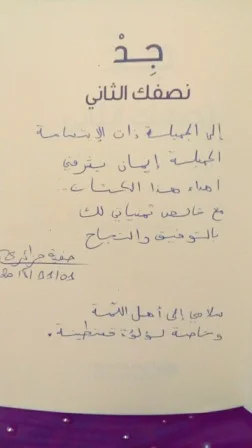 جِدْ
نصفك الثاني
إلى الجميلة ذات الإبتسامة
الجميلة إيمان يشرفني
اهداء هذا الكتاب
مع خالص تمنياتي لك
بالتوفيق والنجاح
سلامي إلى أهل
وخاصة لؤلؤة قسنطينة.